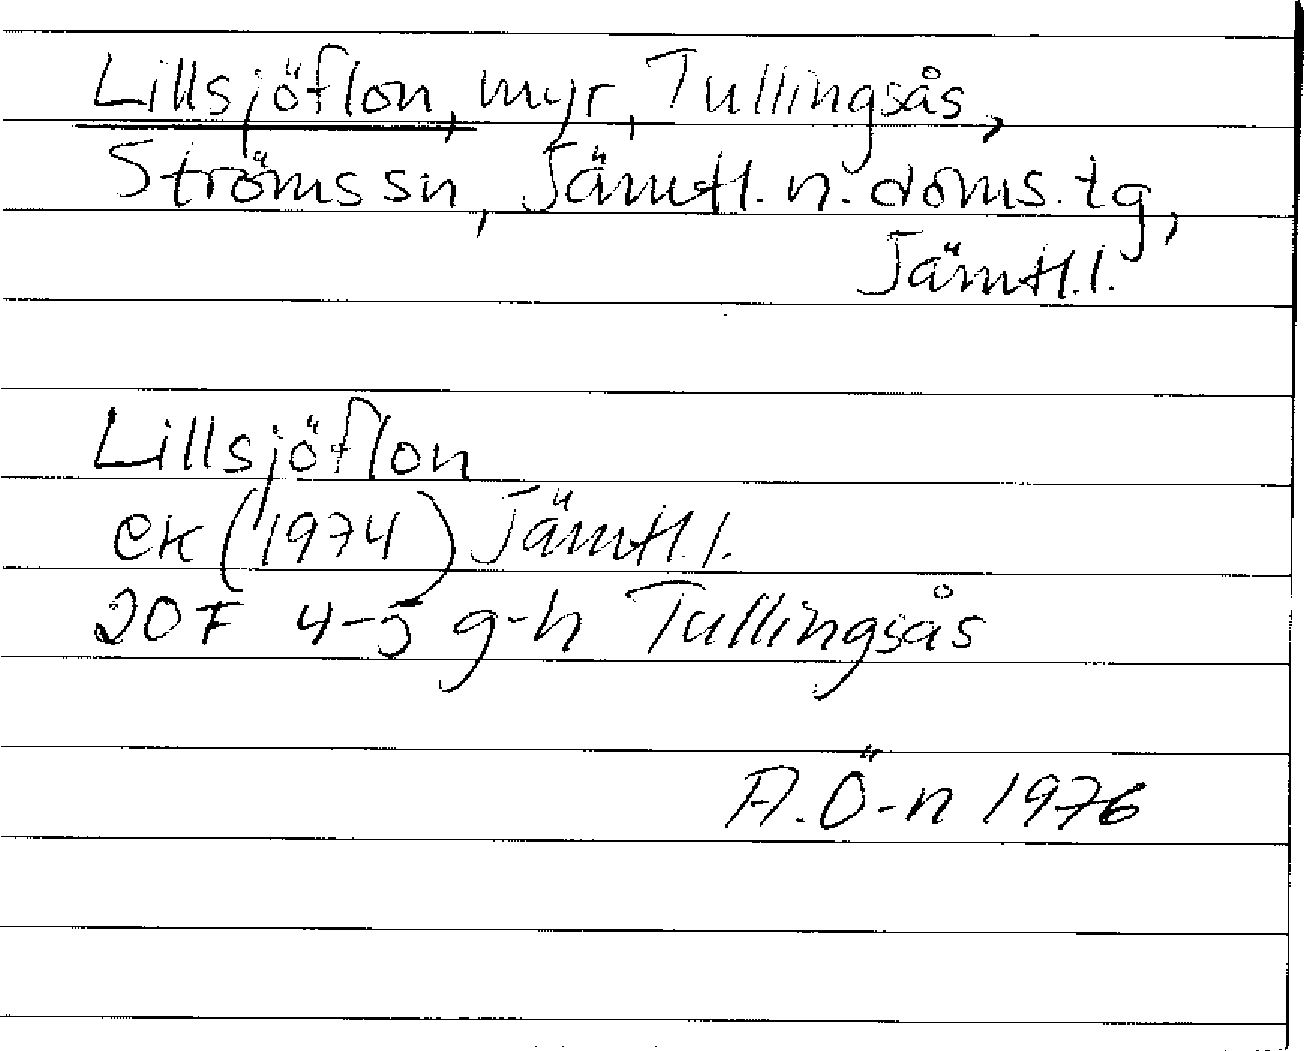 Lillsjöflon, myr, Tullingsås,
Ströms sn, Jämtl. n. doms. tg,
Jämtl. l.
Lillsjöflon
ek (1974) Jämtl. l.
20F 4-5 g-h Tullingsås
A. Ö-n 1976